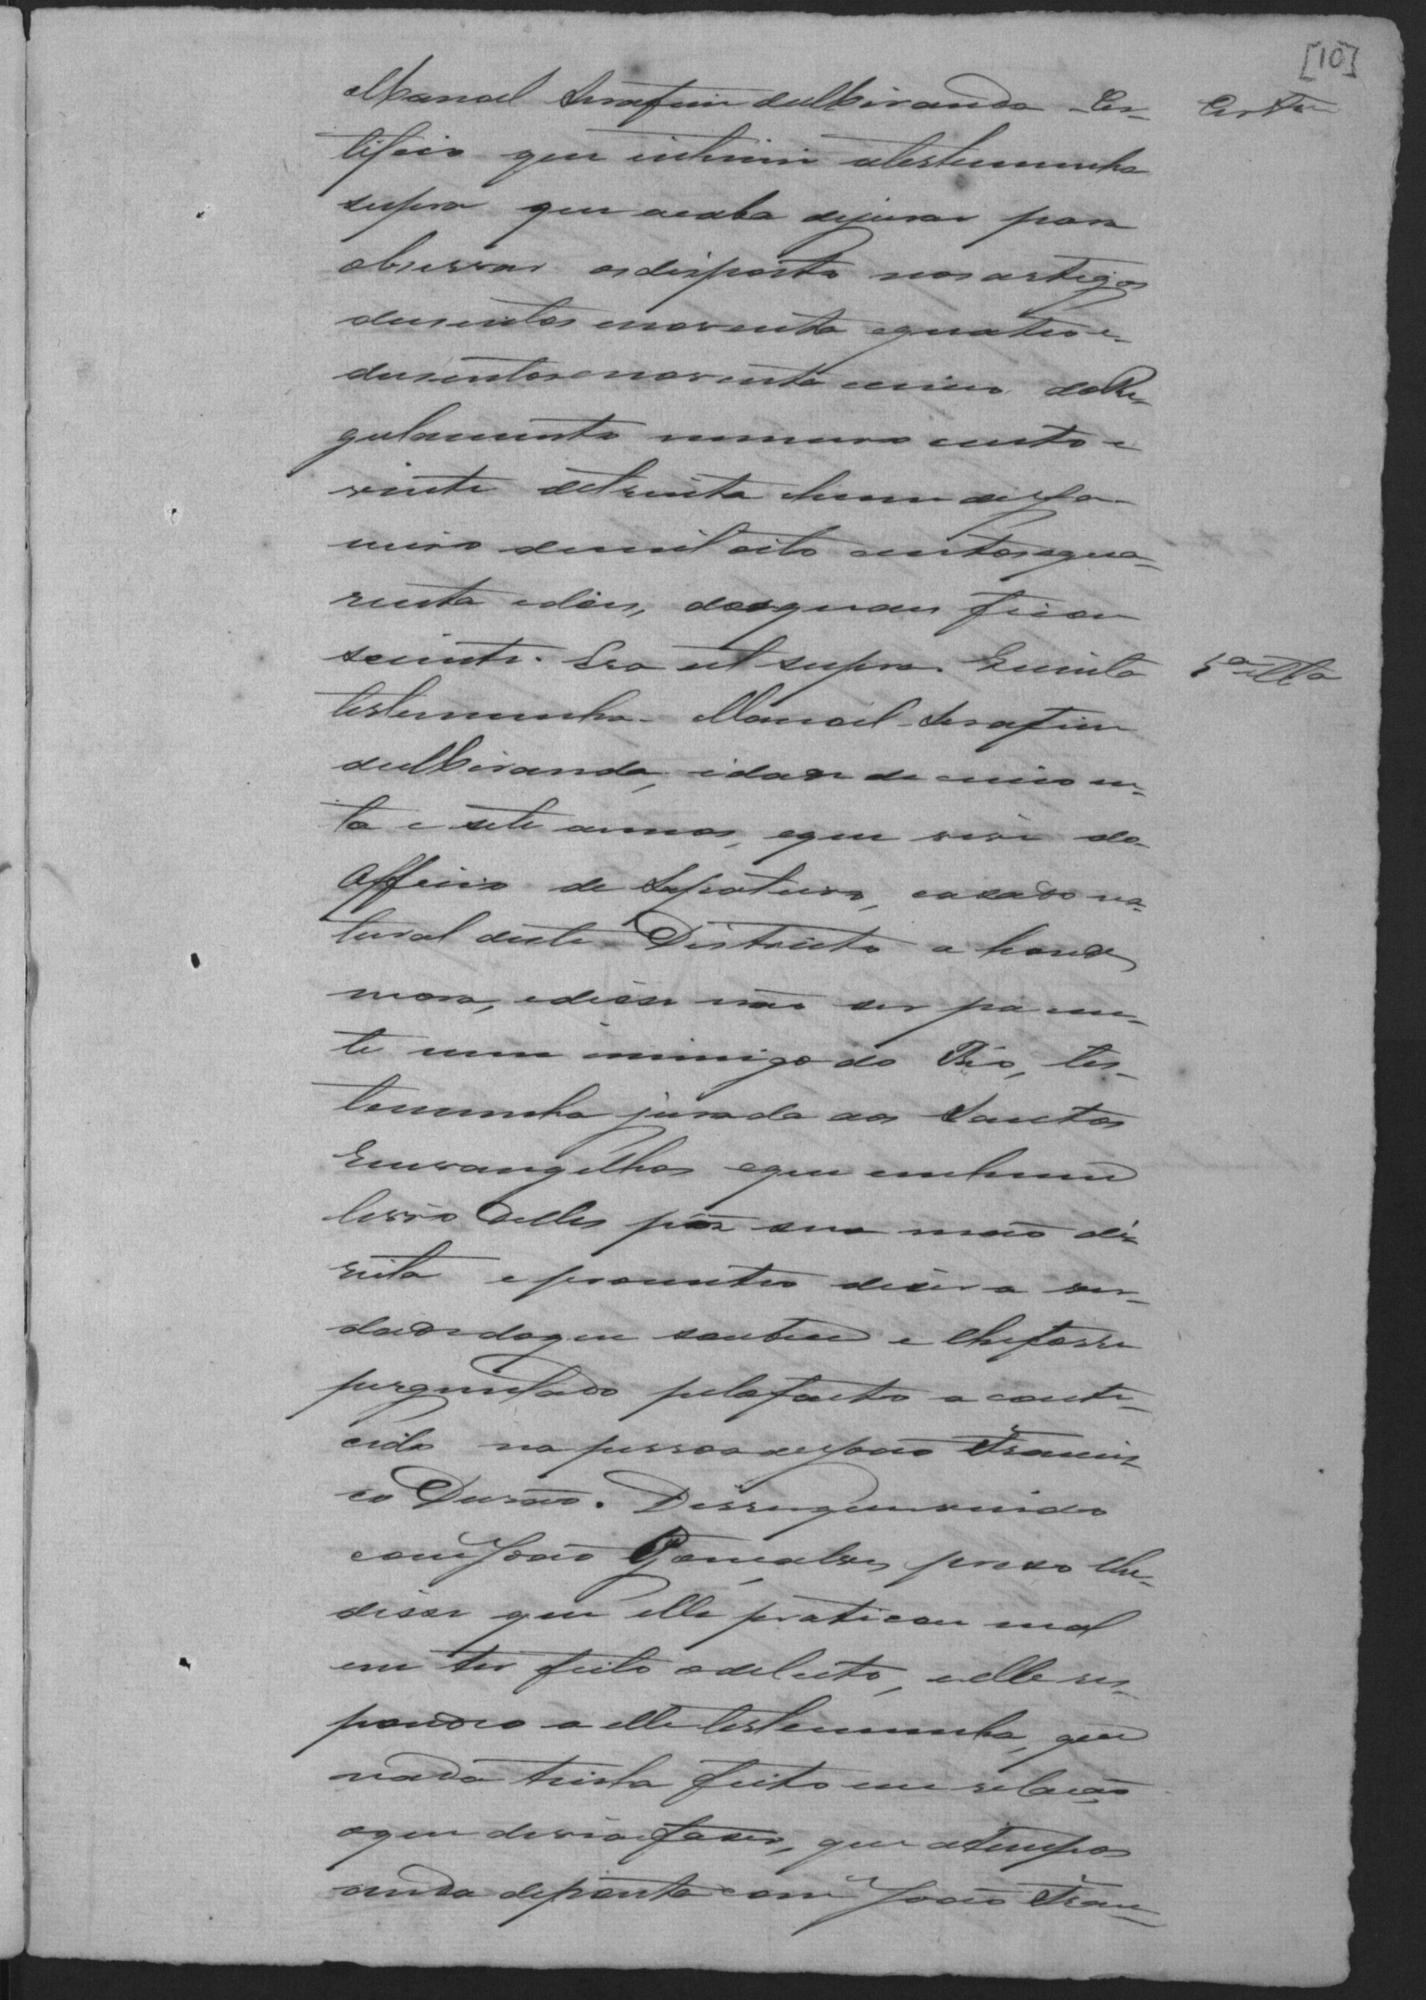 [10]
Manoel Serafim de Miranda Cer-
Certam
tifico que intimei a testemunha
supra que acaba de jurar para
observar o disposto nos artigos
dusentos e noventa e quatro e
dusentos e noventa e cinco do Re-
gulamento numero cento e
vinte de trinta e hum de Ja-
neiro de mil oito centos e qua-
renta e dois, do que ficou
sciente. Era ut supra. Quinta
5ª Ttª
testemunha Manoel Serafim
de Miranda, idade de cinco en-
ta e sete annos, e que vive do
Officio de Sapateiro, casado na-
tural deste Districto a honde
mora, e disse não ser paren-
te nem inimigo do Réo, tes-
temunha jurada aos Santos
Euvangelhos e que em hum
livro delles pôz sua mão di-
reita e prometeo diser a ver-
dade do que soubece e lhe fosse
perguntado pelo facto aconte-
cido na pessoa de João Francis-
co Durão. Disse que vindo
com João Gonçalves preso lhe
disse que elle praticou mal
em ter feito o delicto, e elle res-
pondeo a elle testemunha, que
nada tinha feito em relação
o que devia faser, que a tempos
anda de ponta com João Fran-